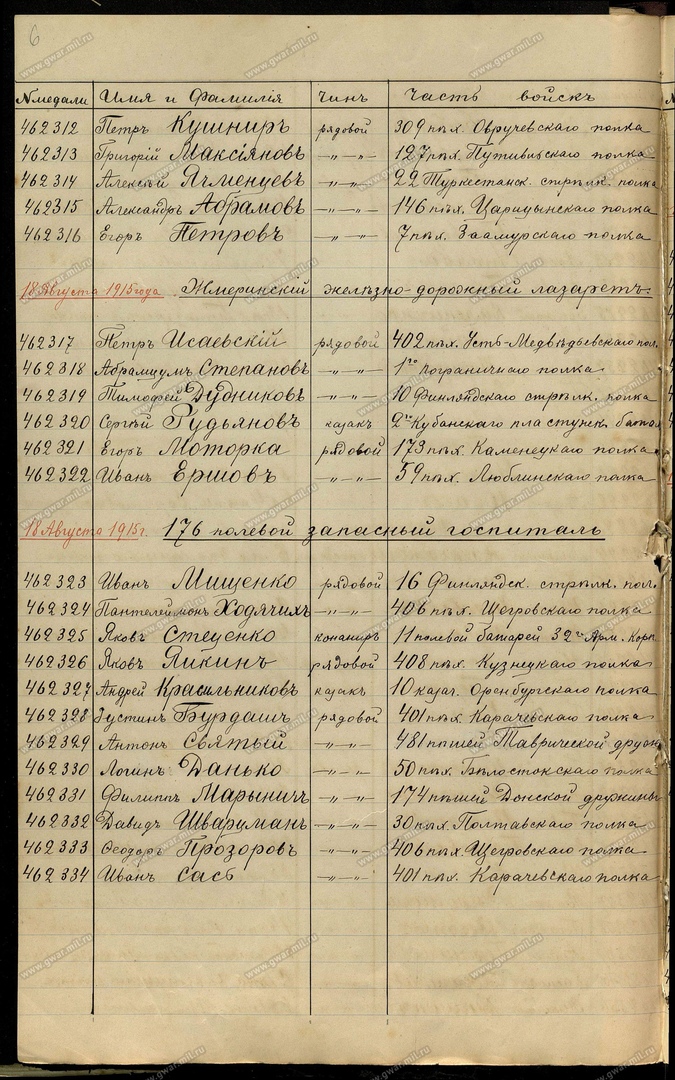 6
№ медали Имя и Фамилія Чинъ Часть войскъ
462312 Петръ Кушниръ рядовой 309 пѣх. Овручевскаго полка
462313 Григорій Максіяновъ -"-"- 127 пѣх. Путивльскаго полка
462314 Алексѣй Ячменцевъ -"-"- 22 Туркестанск. стрѣлк. полка
462315 Александръ Абрамовъ -"-"- 146 пѣх. Царицынскаго полка
462316 Егоръ Петровъ -"-"- 7 пѣх. Заамурскаго полка
18 Августа 1915 года Жмеринскій желѣзно-дорожный лазаретъ.
462317 Петръ Исаевскій рядовой 402 пѣх. Усть-Медвѣдьевскаго пол.
462318 Абрамщумъ Степановъ -"-"- 1го пограничнаго полка
462319 Тимофей Дудниковъ -"-"- 10 Финляндскаго стрѣлк. полка
462320 Сергѣй Гудьяновъ казакъ 2го Кубанскаго пластунск. батал
462321 Егоръ Моторка рядовой 173 пѣх. Каменецкаго полка
462322 Иванъ Ершовъ -"-"- 59 пѣх. Люблинскаго полка
18 Августа 1915 г. 176 полевой запасный госпиталь
462323 Иванъ Мищенко рядовой 16 Финляндск. стрѣлк. пол.
462324 Пантелеймонъ Ходячихъ -"-"- 406 пѣх. Щегровскаго полка
462325 Яковъ Стеценко конаниръ 11 полевой батарей 32го Арм. Корп
462326 Яковъ Яикинъ рядовой 408 пѣх. Кузнецкаго полка
462327 Андрей Красильниковъ казакъ 10 казач. Оренбургскаго полка
462328 Іустинъ Бурдашъ рядовой 401 пѣх. Карачевскаго полка
462329 Антонъ Святый -"-"- 481 пѣшей Таврической дружи
462330 Логинъ Данько -"-"- 50 пѣх. Бѣлостокскаго полка
462331 Филиппъ Марыничъ -"-"- 174 пѣшей Донской дружины
462332 Давидъ Шварцманъ -"-"- 30 пѣх. Полтавскаго полка
462333 Ѳеодоръ Прозоровъ -"-"- 406 пѣх. Щегровскаго полка
462334 Иванъ Сасъ -"-"- 401 пѣх. Карачевскаго полка
www.gwar.mil.ru